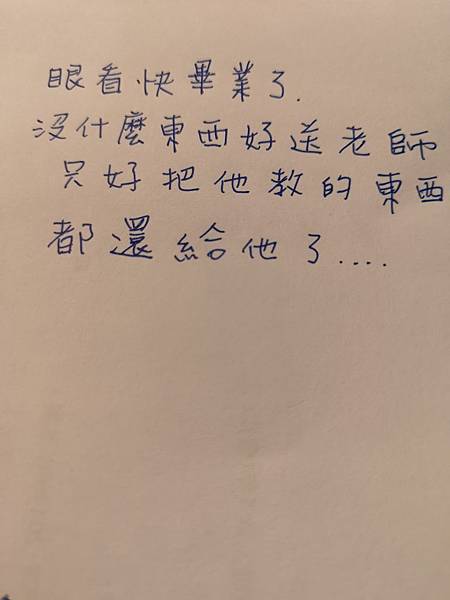 眼看快畢業了.
沒什麼東西好送老師
只好把他教的東西
都還給他了....